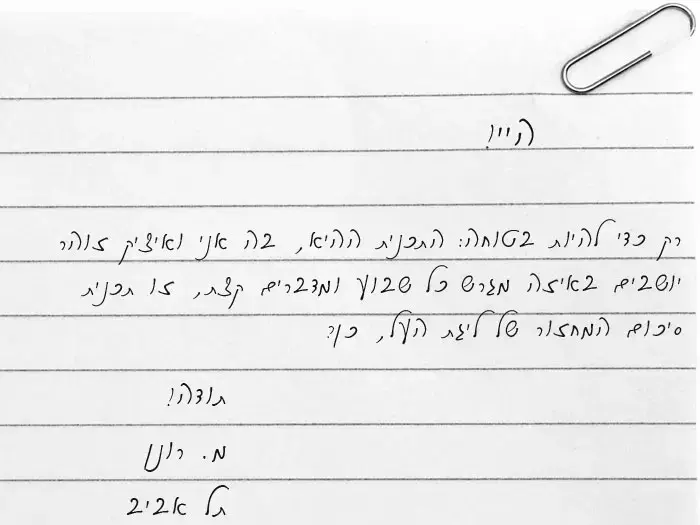 היי!
רק כדי להיות בטוחה: התכנית ההיא, בה אני ואיציק זוהר
יושבים באיזה מגרש כל שבוע ומדברים קצת, זו תכנית
סיכום המחזור של ליגת העל, כן?
תודה!
מ. רונן
תל אביב